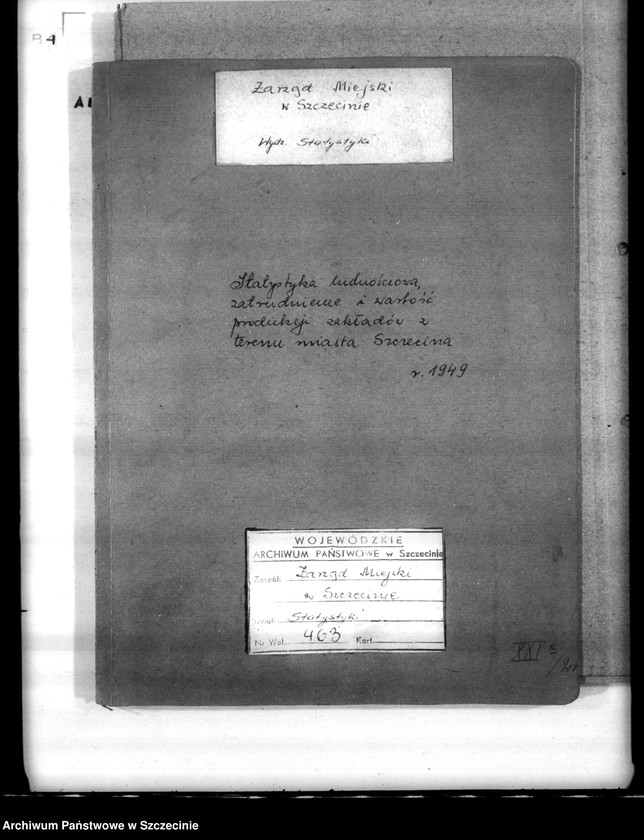 B4
Zarząd Miejski
w Szczecinie
Wydz. Statystyki
Statystyka ludnościowa,
zatrudnienie i wartość
produkcji zakładów z
terenu miasta Szczecina
r. 1949
WOJEWÓDZKIE
ARCHIWUM PAŃSTWOWE w Szczecinie
Zespół: Zarząd Miejski
w Szczecinie
Statystyki
Nr Wol. 463 Kart.
XXI
Archiwum Państwowe w Szczecinie